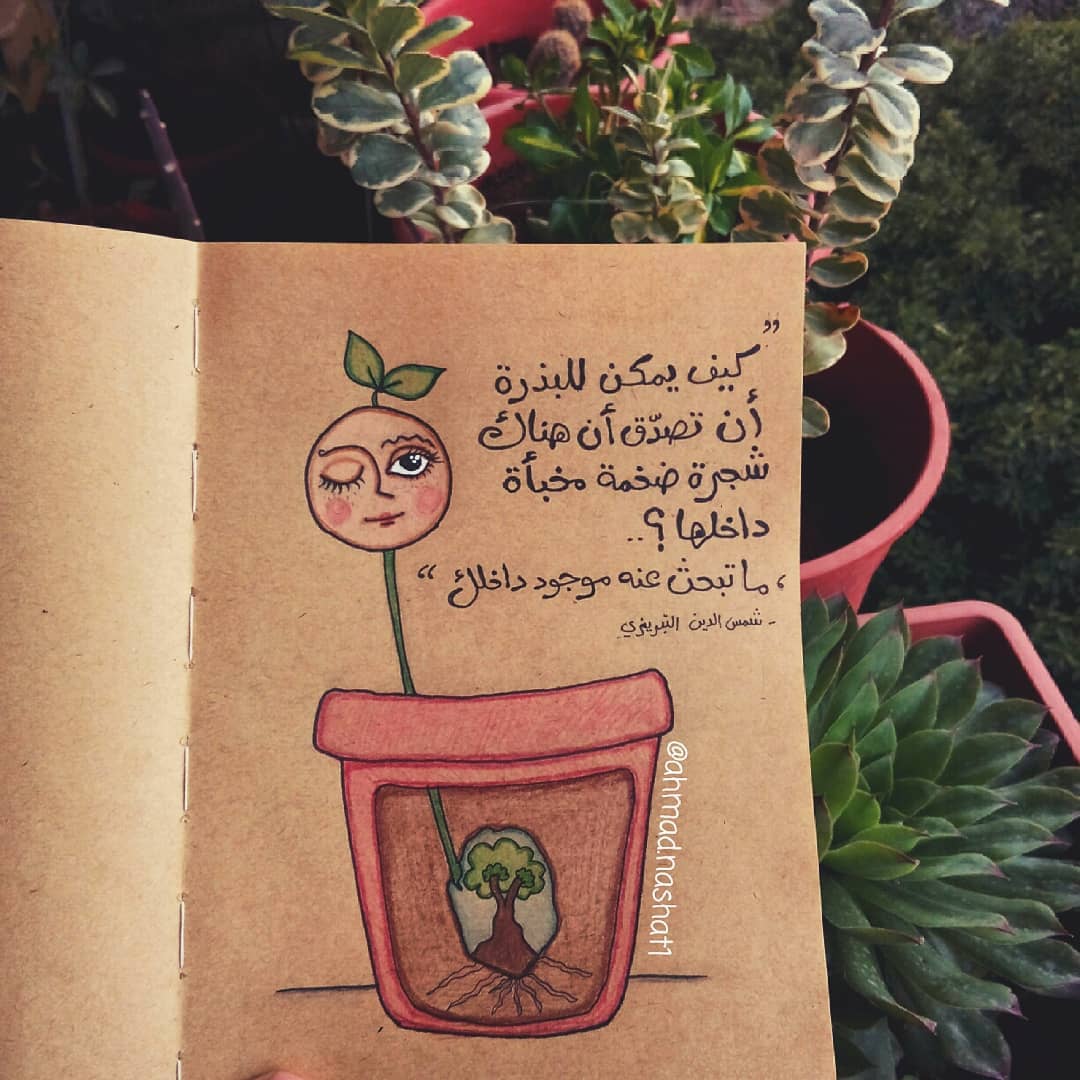 ”
كيف يمكن للبذرة
أن تصدّق أن هناك
شجرة ضخمة مخبأة
داخلها؟..
، ما تبحث عنه موجود داخلك “
- شمس الدين التبريزي
@ahmad.nashat1